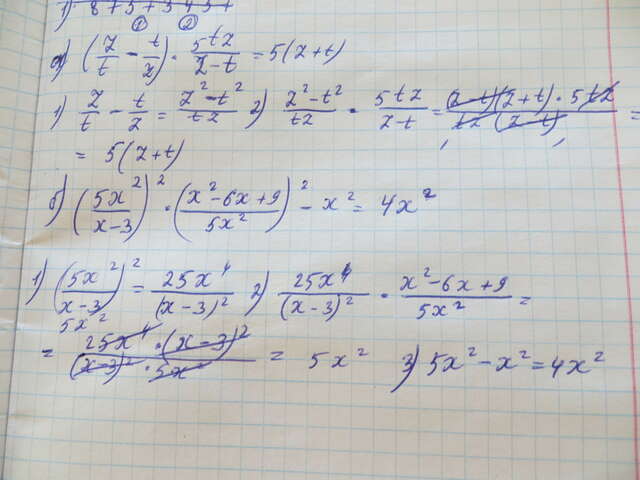 1) 8 + 5 + 3 4 5 +
① ②
а) (z/t − t/z) · 5tz/(z−t) = 5(z+t)
1) z/t − t/z = (z²−t²)/tz 2) (z²−t²)/tz · 5tz/(z−t) = (z−t)(z+t)·5tz/tz(z−t) =
= 5(z+t)
б) (5x²/(x−3))² · ((x²−6x+9)/5x²)² − x² = 4x²
1) (5x²/(x−3))² = 25x⁴/(x−3)² 2) 25x⁴/(x−3)² · (x²−6x+9)/5x² =
5x²
= 25x⁴·(x−3)²/(x−3)²·5x² = 5x² 3) 5x²−x²=4x²